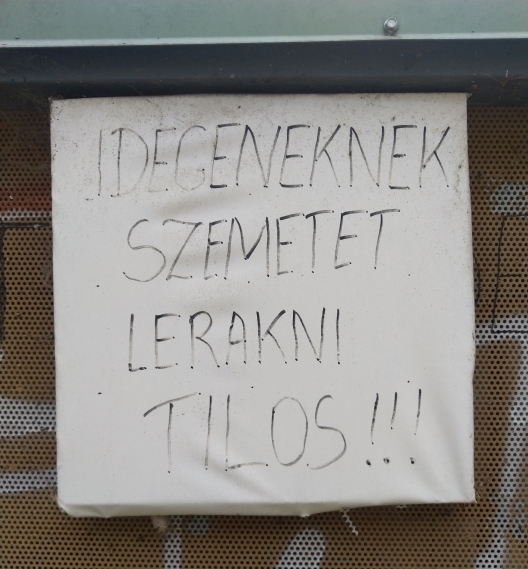 IDEGENEKNEK
SZEMETET
LERAKNI
TILOS!!!